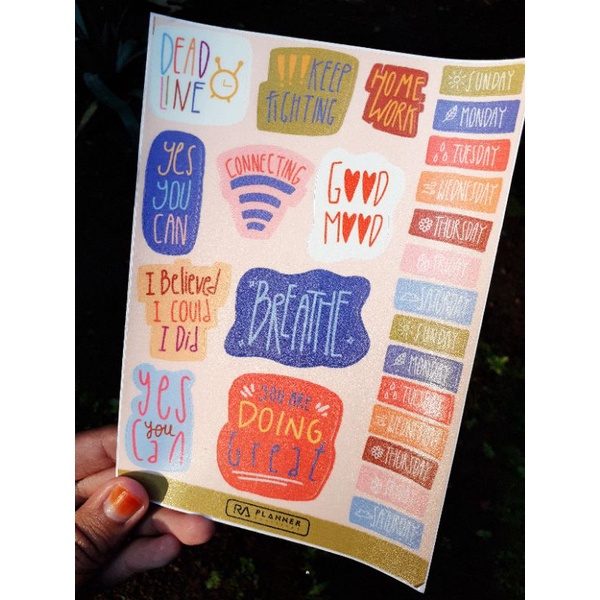 DEAD
LINE
!!! KEEP
FIGHTING
HOME
WORK
YES
YOU
CAN
CONNECTING
GOOD
MOOD
I Believed
I COULD
I Did
"BREATHE"
yes
you
Can
YOU ARE
DOING
Great
SUNDAY
MONDAY
TUESDAY
WEDNESDAY
THURSDAY
FRIDAY
SATURDAY
SUNDAY
MONDAY
TUESDAY
WEDNESDAY
THURSDAY
FRIDAY
SATURDAY
RA PLANNER